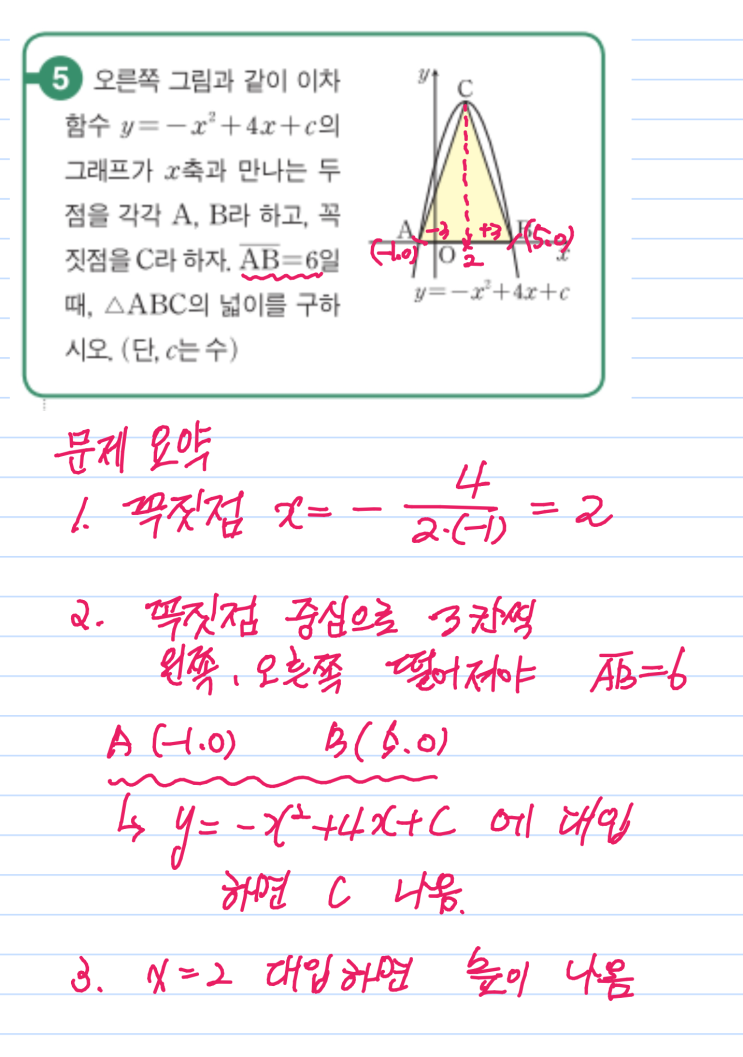 5 오른쪽 그림과 같이 이차
함수 y=-x²+4x+c의
그래프가 x축과 만나는 두
점을 각각 A, B라 하고, 꼭
짓점을 C라 하자. AB=6일
때, △ABC의 넓이를 구하
시오. (단, c는 수)
y
C
A -3 +3 B (5.0)
(-1.0) O 2 x
y=-x²+4x+c
문제 요약
1. 꼭짓점 x= - 4/2·(-1) = 2
2. 꼭짓점 중심으로 3칸씩
왼쪽, 오른쪽 떨어져야 AB=6
A (-1.0) B(5.0)
↳ y= -x²+4x+c 에 대입
하면 c 나옴.
3. x=2 대입하면 높이 나옴